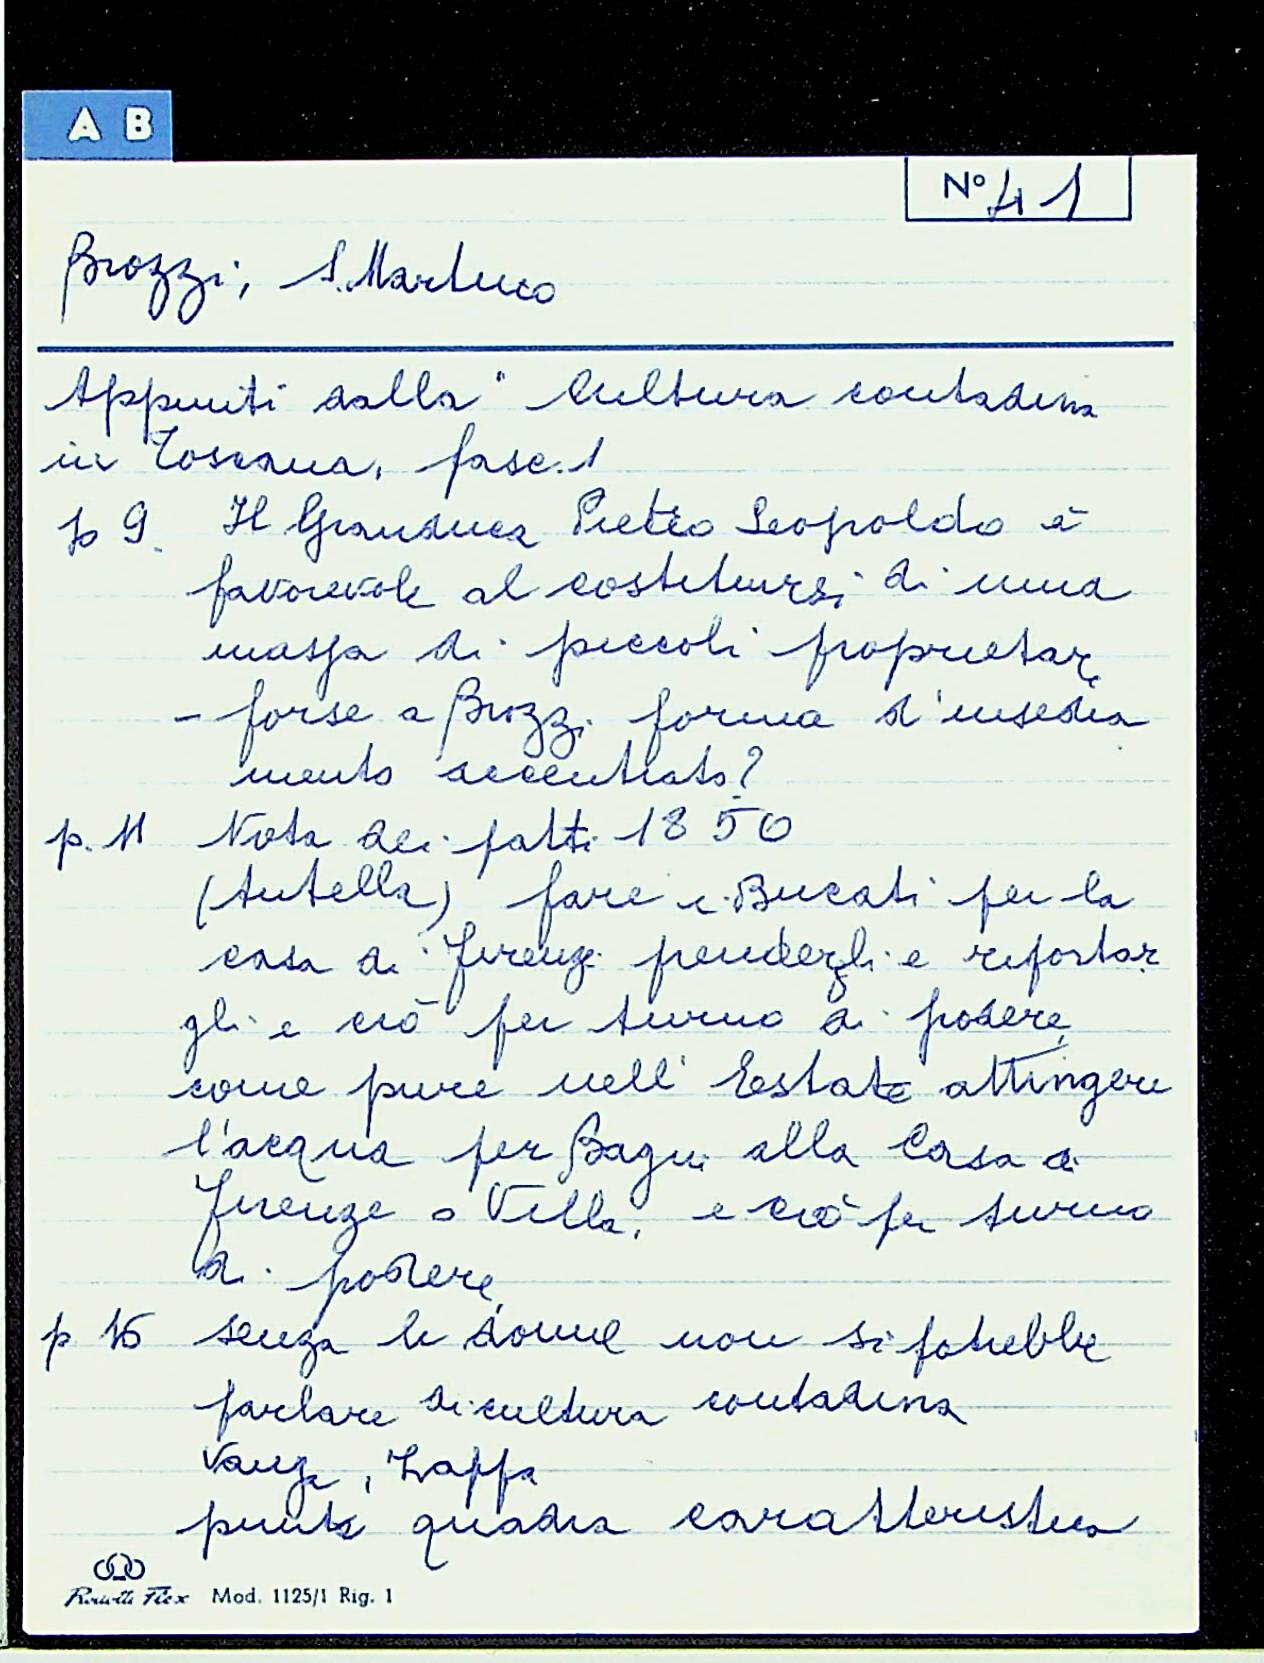 A B
N° 41
Brozzi, S. Martino
Appunti dalla "Cultura contadina
in Toscana, fasc. 1
p 9. Il Granduca Pietro Leopoldo è
favorevole al costituirsi di una
massa di piccoli proprietar
- forse a Brozzi forma d'insedia
mento accentrato?
p. 11 Nota dei patti 1850
(Antella) fare i Bucati per la
casa di Firenze prendergli e riportar
gli e ciò per turno di podere,
come pure nell' Estate attingere
l'acqua per Bagni alla Casa di
Firenze o Villa, e ciò per turno
di podere
p 16 senza le donne non si potrebbe
parlare di cultura contadina
Vanga, Zappa
punta quadra caratteristica
Mod. 1125/1 Rig. 1